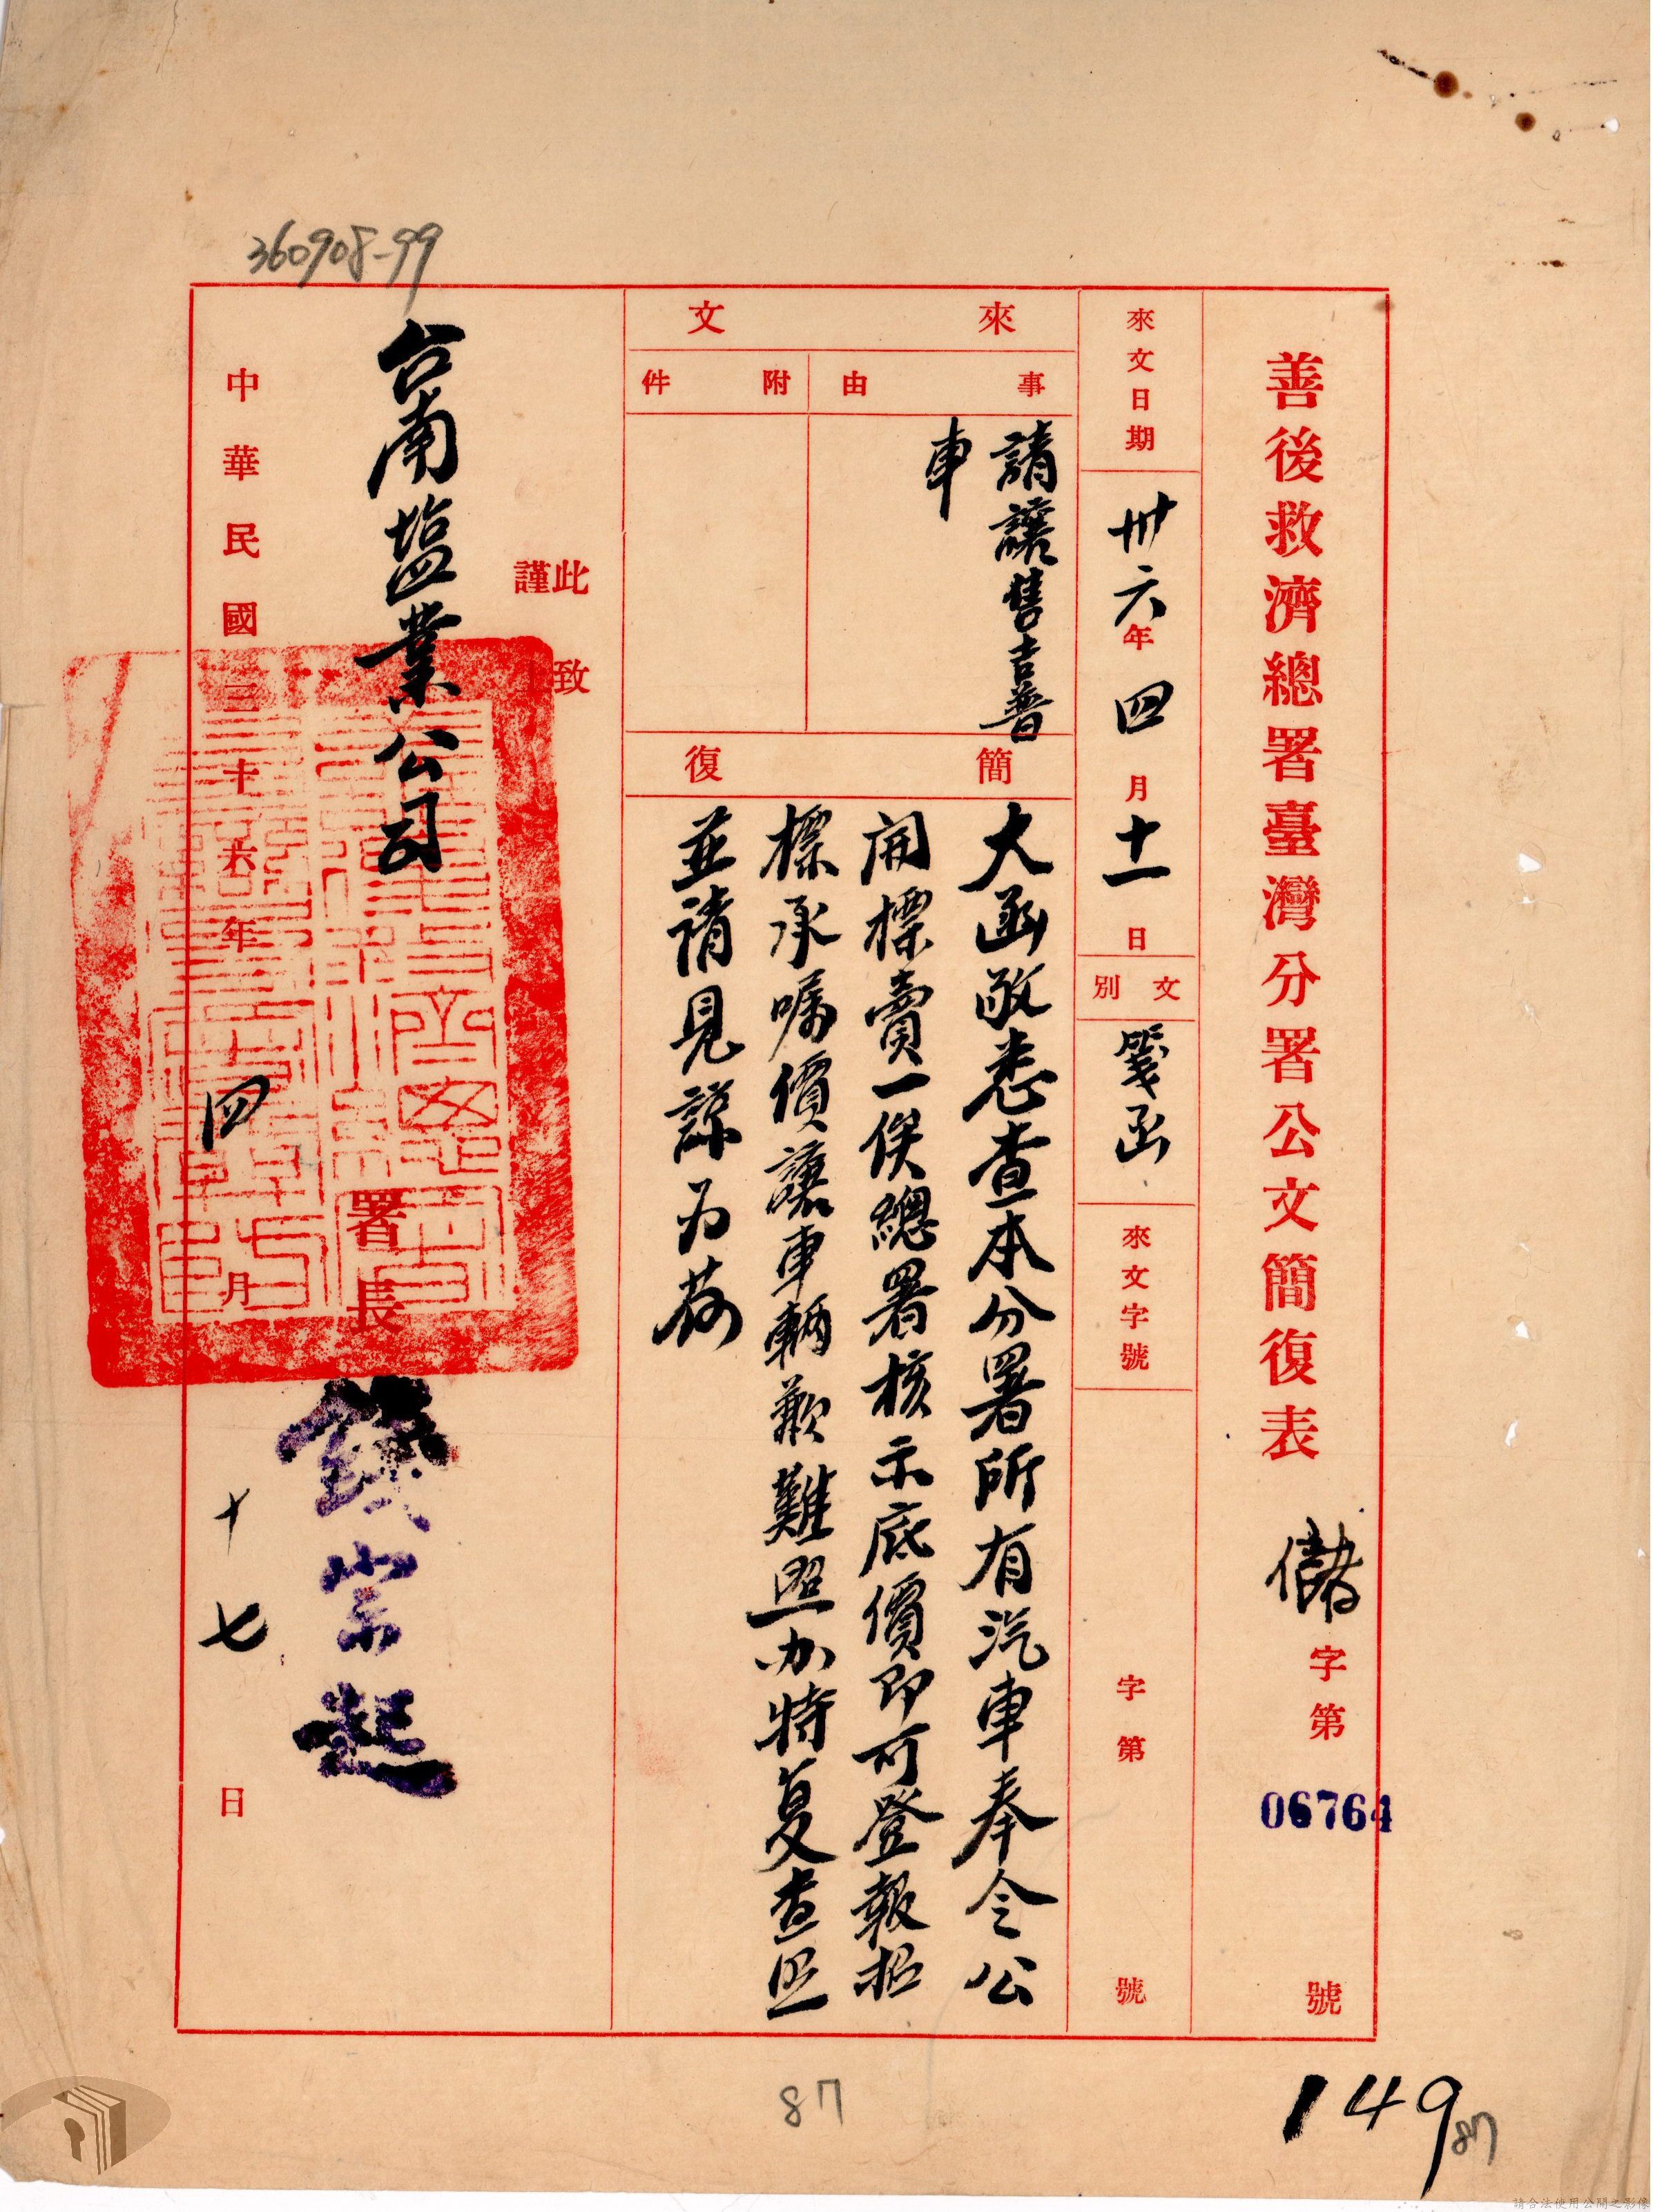 360908-99
善後救濟總署臺灣分署公文簡復表
儲字第06764號
來文日期
卅六年四月十一日
文別
箋函
來文字號
字第 號
來文
事由
請讓售吉普
車
附件
簡復
大函敬悉查本分署所有汽車奉令公
開標賣一俟總署核示底價即可登報招
標承囑價讓車輛歉難照办特复查照
並請見諒为荷
此致
謹
台南塩業公司
署長 錢宗起
中華民國三十六年四月十七日
87
149
87
請合法使用公開之影像